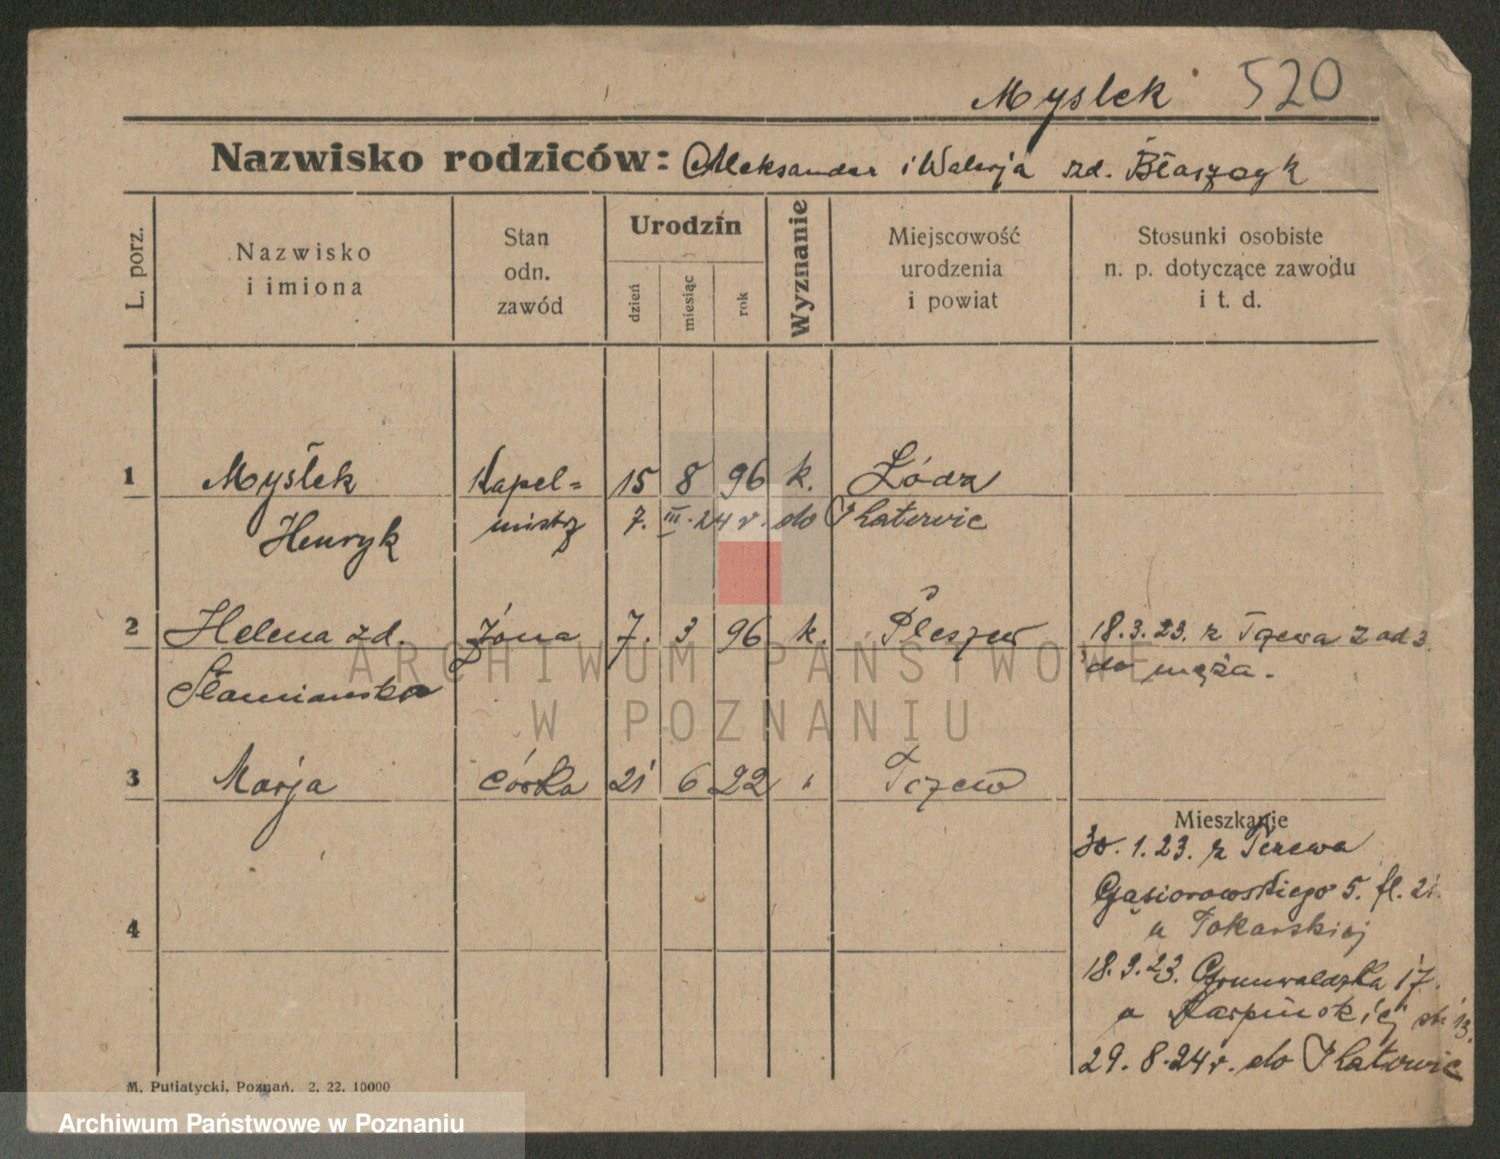 Myslek 520
Nazwisko rodziców: Aleksander i Walerja zd. Błaszczyk
L. porz.
Nazwisko
i imiona
Stan
odn.
zawód
Urodzin
dzień
miesiąc
rok
Wyznanie
Miejscowość
urodzenia
i powiat
Stosunki osobiste
n. p. dotyczące zawodu
i t. d.
1 Mysłek Kapel= 15 8 96 k. Łódz
Henryk mistrz 7. III. 24 r. do Katowic
2 Helena zd. żona 7. 3 96 k. Pleszew 18.3.23. z Tczewa
do męża.
ARCHIWUM PAŃSTWOWE
W POZNANIU
3 Marja córka 21 6 22 " Tczew
Mieszkanie
30.1.23. z Tczewa
Gąsiorowskiego 5. fl. 21.
u Tokarskiej
4
18.9.23. Grunwaldzka 17.
u Karpińskiej
29.8.24 r. do Katowic
M. Putiatycki, Poznań. 2. 22. 10000
Archiwum Państwowe w Poznaniu